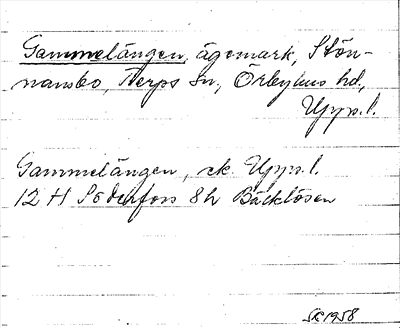 Gammelängen, ägomark, Stön-
nansbo, Tierps sn, Örbyhus hd,
Upps. l.
Gammelängen, ek. Upps. l.
12 H Söderfors 8h Bäcklösen
1958